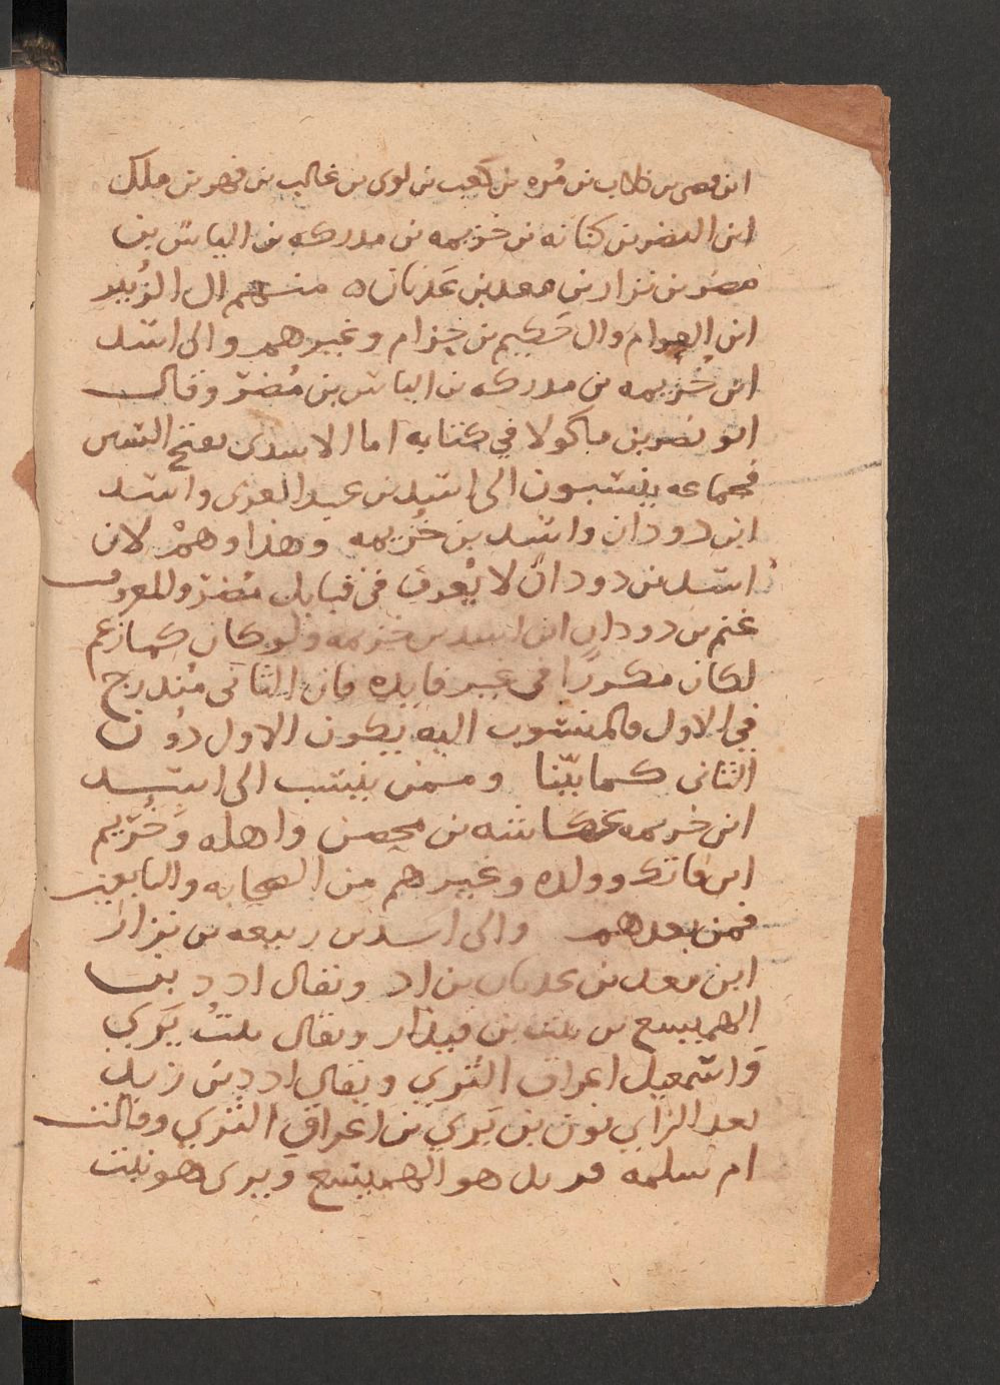 ابن قصى بن كلاب بن مُره بن كعب بن لوى بن غالب بن فهر بن ملك
ابن النضر بن كنانه بن خزيمه بن مدركه بن الياس بن
مضر بن نزار بن معد بن عَدنان ه منهم ال الزُبير
ابن العوام وال حَكيم بن حِزام وغيرهم والى اسد
ابن خُزيمه بن مدركه بن الياس بن مُضر وقال
ابو نصر بن ماكولا في كتابه اما الاسدى بفتح السين
فجماعه ينسبون الى اسد بن عبد العزى واسد
ابن دودان واسد بن خُزيمه وهذا وهمْ لان
اسد بن دودان لا يُعرف في قبايل مُضر والمعروف
غنم بن دودان ابن اسد بن خزيمه ولو كان كما زعم
لكان مكررًا في غير فايده فان الثانى مُندرج
في الاول فالمنسوب اليه يكون الاول دُون
الثانى كما بيّنا وممن ينسب الى اسد
ابن خزيمه عكاشه بن محصن واهله وخُريم
ابن فاتك وولده وغيرهم من الصحابه والتابعين
فمن بعدهم والى اسد بن ربيعه بن نزار
ابن معد بن عدنان بن اد ويقال ادد بن
الهميسع بن نبت بن قيذار ويقال نبتُ يَرَي
وَاسمعيل اعراق الثرى ويقال ادد بن زيد
بعد الزاي نون بن يَري بن اعراق الثري وقالت
ام سلمه فزيد هو الهميسع وَيرى هو نبت